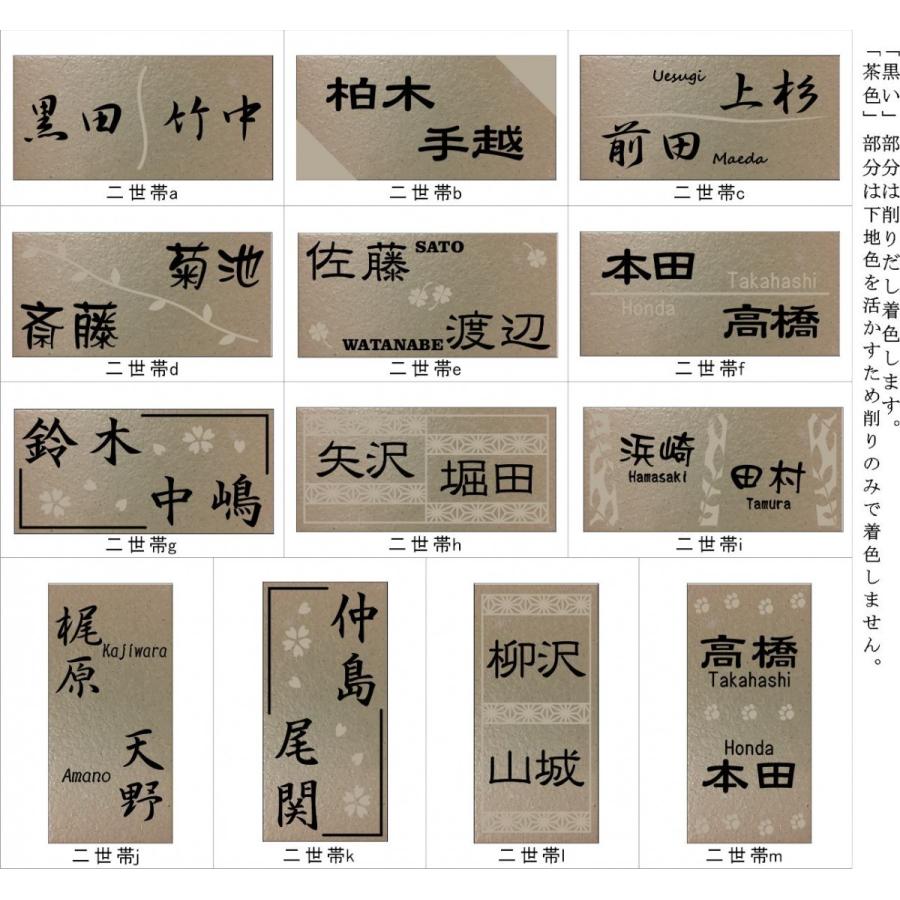 「黒い」部分は削りだし着色します。
「茶色」部分は下地色を活かすため削りのみで着色しません。
黒田 竹中
二世帯a
柏木
手越
二世帯b
Uesugi 上杉
前田 Maeda
二世帯c
菊池
斎藤
二世帯d
佐藤 SATO
WATANABE 渡辺
二世帯e
本田 Takahashi
Honda 高橋
二世帯f
鈴木
中嶋
二世帯g
矢沢
堀田
二世帯h
浜崎
Hamasaki
田村
Tamura
二世帯i
梶原 Kajiwara
Amano 天野
二世帯j
仲島
尾関
二世帯k
柳沢
山城
二世帯l
高橋
Takahashi
Honda
本田
二世帯m